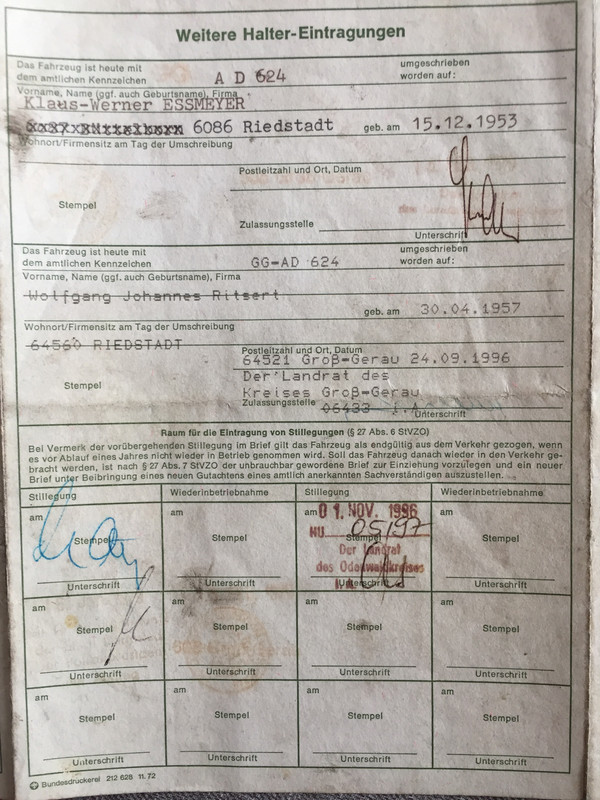 Weitere Halter-Eintragungen
Das Fahrzeug ist heute mit
dem amtlichen Kennzeichen A D 624 umgeschrieben worden auf:
Vorname, Name (ggf. auch Geburtsname), Firma
Klaus-Werner ESSMEYER
6086 Riedstadt geb. am 15.12.1953
Wohnort/Firmensitz am Tag der Umschreibung
Postleitzahl und Ort, Datum
Stempel
Zulassungsstelle
Unterschrift
Das Fahrzeug ist heute mit
dem amtlichen Kennzeichen GG-AD 624 umgeschrieben worden auf:
Vorname, Name (ggf. auch Geburtsname), Firma
Wolfgang Johannes Ritsert
geb. am 30.04.1957
Wohnort/Firmensitz am Tag der Umschreibung
64560 RIEDSTADT
Postleitzahl und Ort, Datum
64521 Groß-Gerau 24.09.1996
Der Landrat des
Stempel
Kreises Groß-Gerau
Zulassungsstelle 06433 I.A.
Unterschrift
Raum für die Eintragung von Stillegungen (§ 27 Abs. 6 StVZO)
Bei Vermerk der vorübergehenden Stillegung im Brief gilt das Fahrzeug als endgültig aus dem Verkehr gezogen, wenn
es vor Ablauf eines Jahres nicht wieder in Betrieb genommen wird. Soll das Fahrzeug danach wieder in den Verkehr ge-
bracht werden, ist nach § 27 Abs. 7 StVZO der unbrauchbar gewordene Brief zur Einziehung vorzulegen und ein neuer
Brief unter Beibringung eines neuen Gutachtens eines amtlich anerkannten Sachverständigen auszustellen.
Stillegung Wiederinbetriebnahme Stillegung Wiederinbetriebnahme
am am am 01. NOV. 1996 am
HU 05/97
Stempel Stempel Stempel Stempel
Der Landrat
des Odenwaldkreises
Unterschrift Unterschrift Unterschrift
am am am am
Stempel Stempel Stempel Stempel
Unterschrift Unterschrift Unterschrift Unterschrift
am am am am
Stempel Stempel Stempel Stempel
Unterschrift Unterschrift Unterschrift Unterschrift
Bundesdruckerei 212 628 11. 72